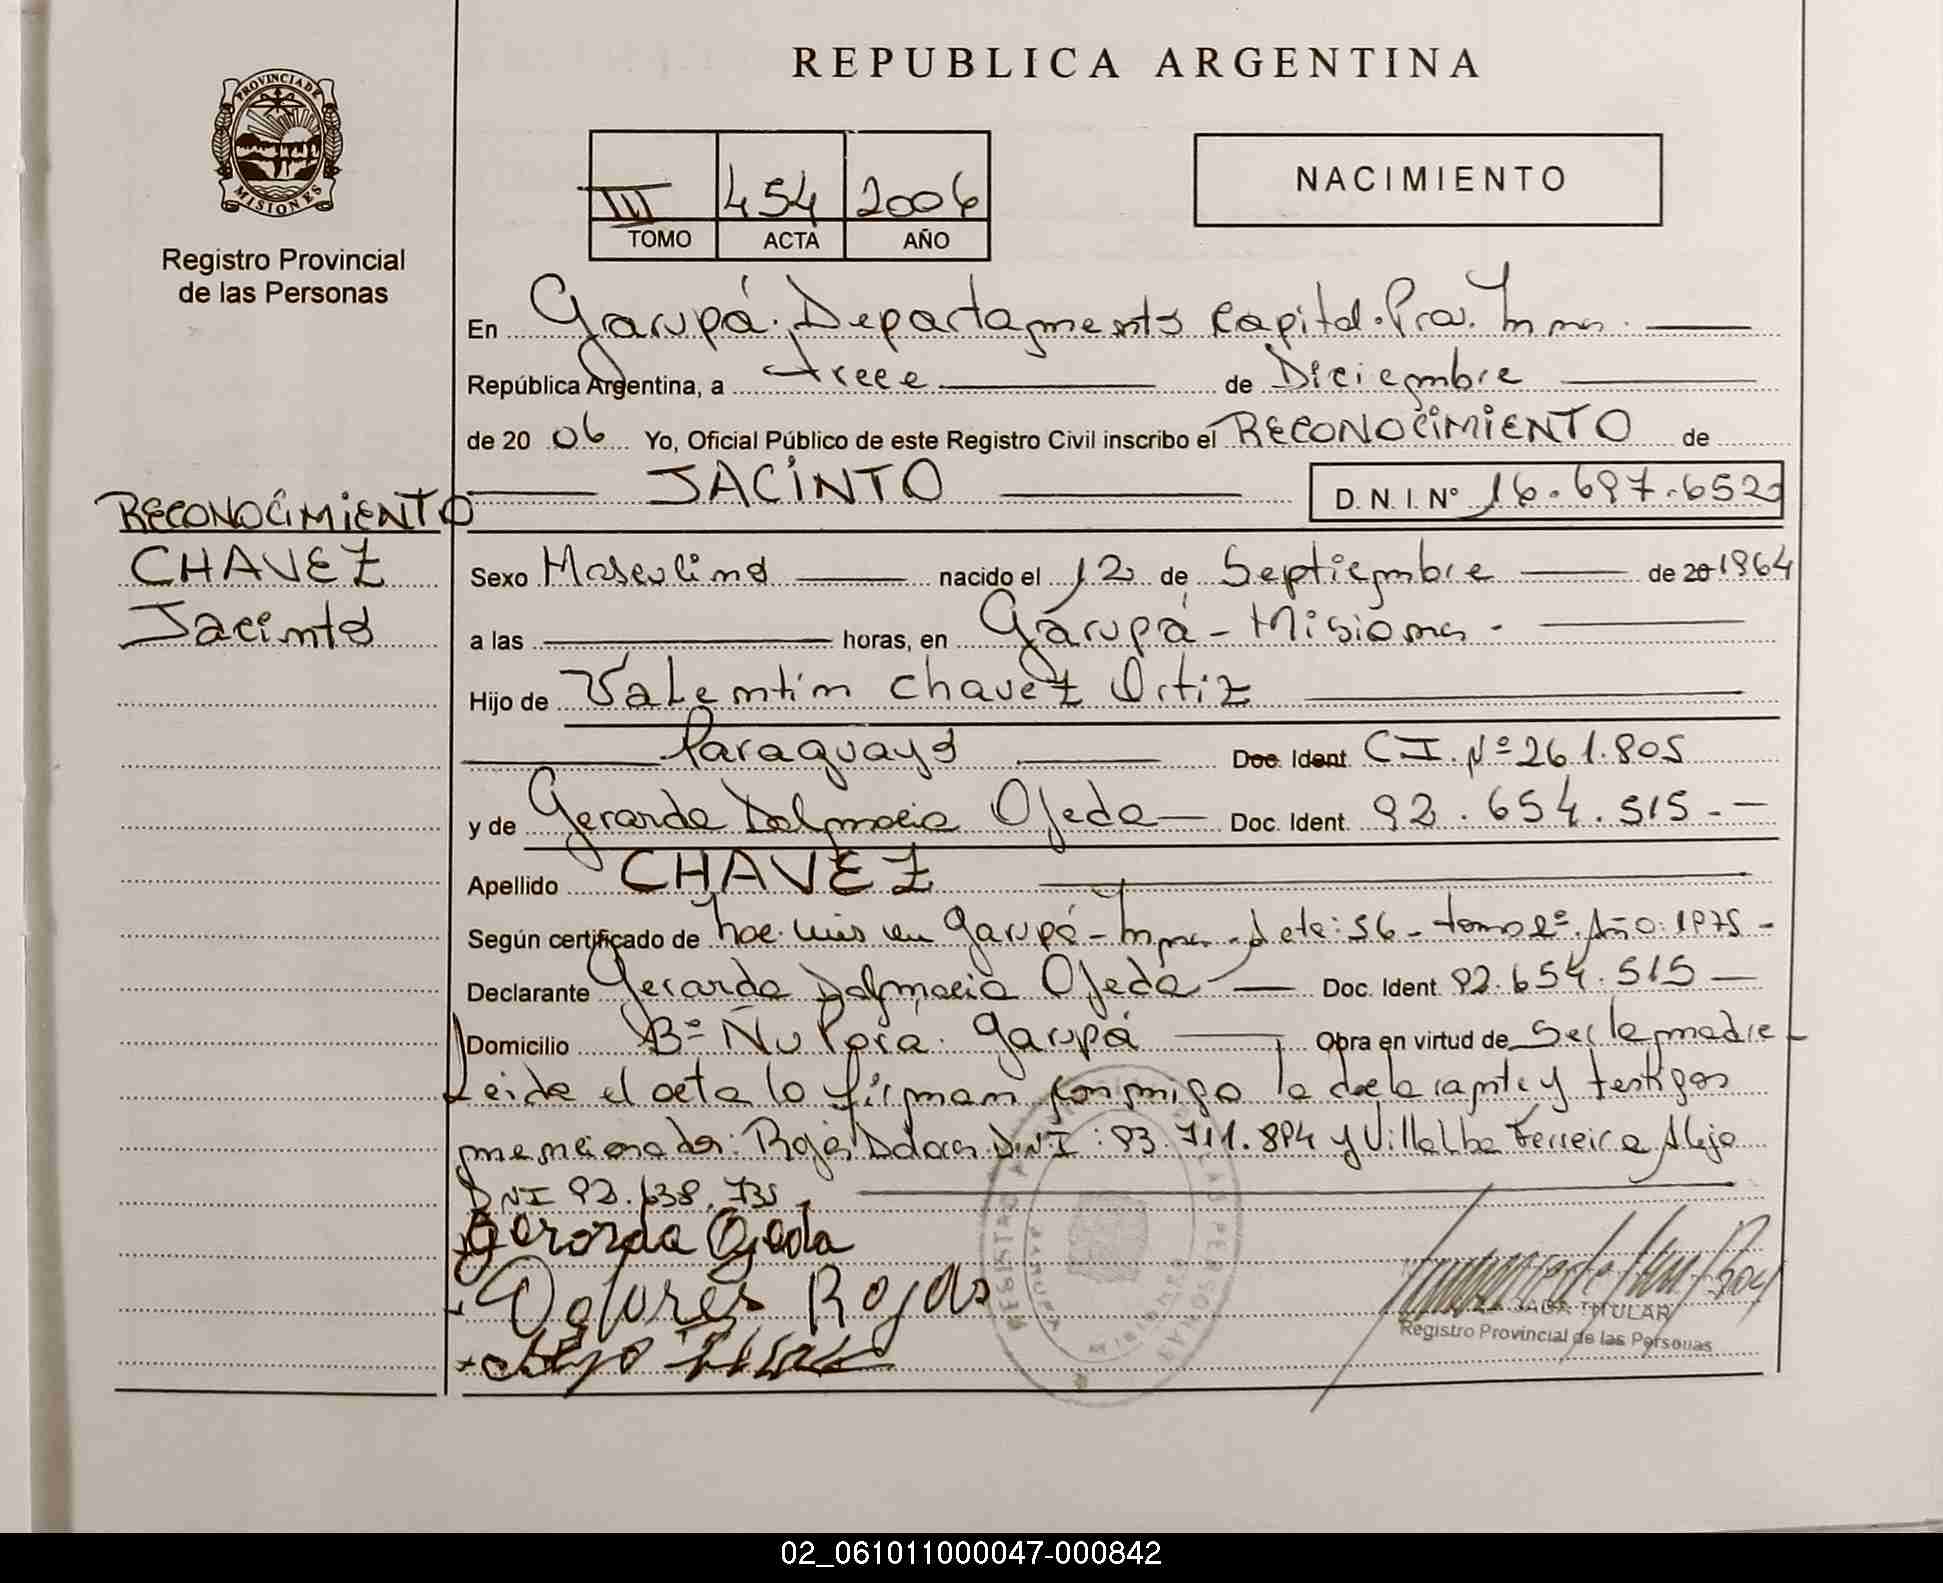 REPUBLICA ARGENTINA
PROVINCIA DE
MISIONES
Registro Provincial
de las Personas
III 454 2006
TOMO ACTA AÑO
NACIMIENTO
En Garupá. Departamento Capital. Prov. Mnes.
República Argentina, a trece de Diciembre
de 20 06 Yo, Oficial Público de este Registro Civil inscribo el RECONOCIMIENTO de
JACINTO D. N. I. Nº 16.697.652
RECONOCIMIENTO
CHAVEZ
Jacinto
Sexo Masculino nacido el 12 de Septiembre de 20 1964
a las horas, en Garupá - Misiones -
Hijo de Valentín Chavez Ortiz
Paraguayo Doc. Ident. CI. Nº 261.805
y de Gerarda Dalmacia Ojeda Doc. Ident. 92.654.515.-
Apellido CHAVEZ
Según certificado de en Garupá - Acta: 56 - tomo 2º. Año: 1975 -
Declarante Gerarda Dalmacia Ojeda Doc. Ident. 92.654.515
Domicilio Bº Ñu Porá. Garupá Obra en virtud de Ser la madre
Leida el acta lo firman conmigo la declarante y testigos
mencionados: Rojas Dolores DNI: 93.711.894 y Villalba Ferreira Alejo
DNI 92.638.735.
Gerarda Ojeda
Dolores Rojas
TITULAR
Registro Provincial de las Personas
02_061011000047-000842